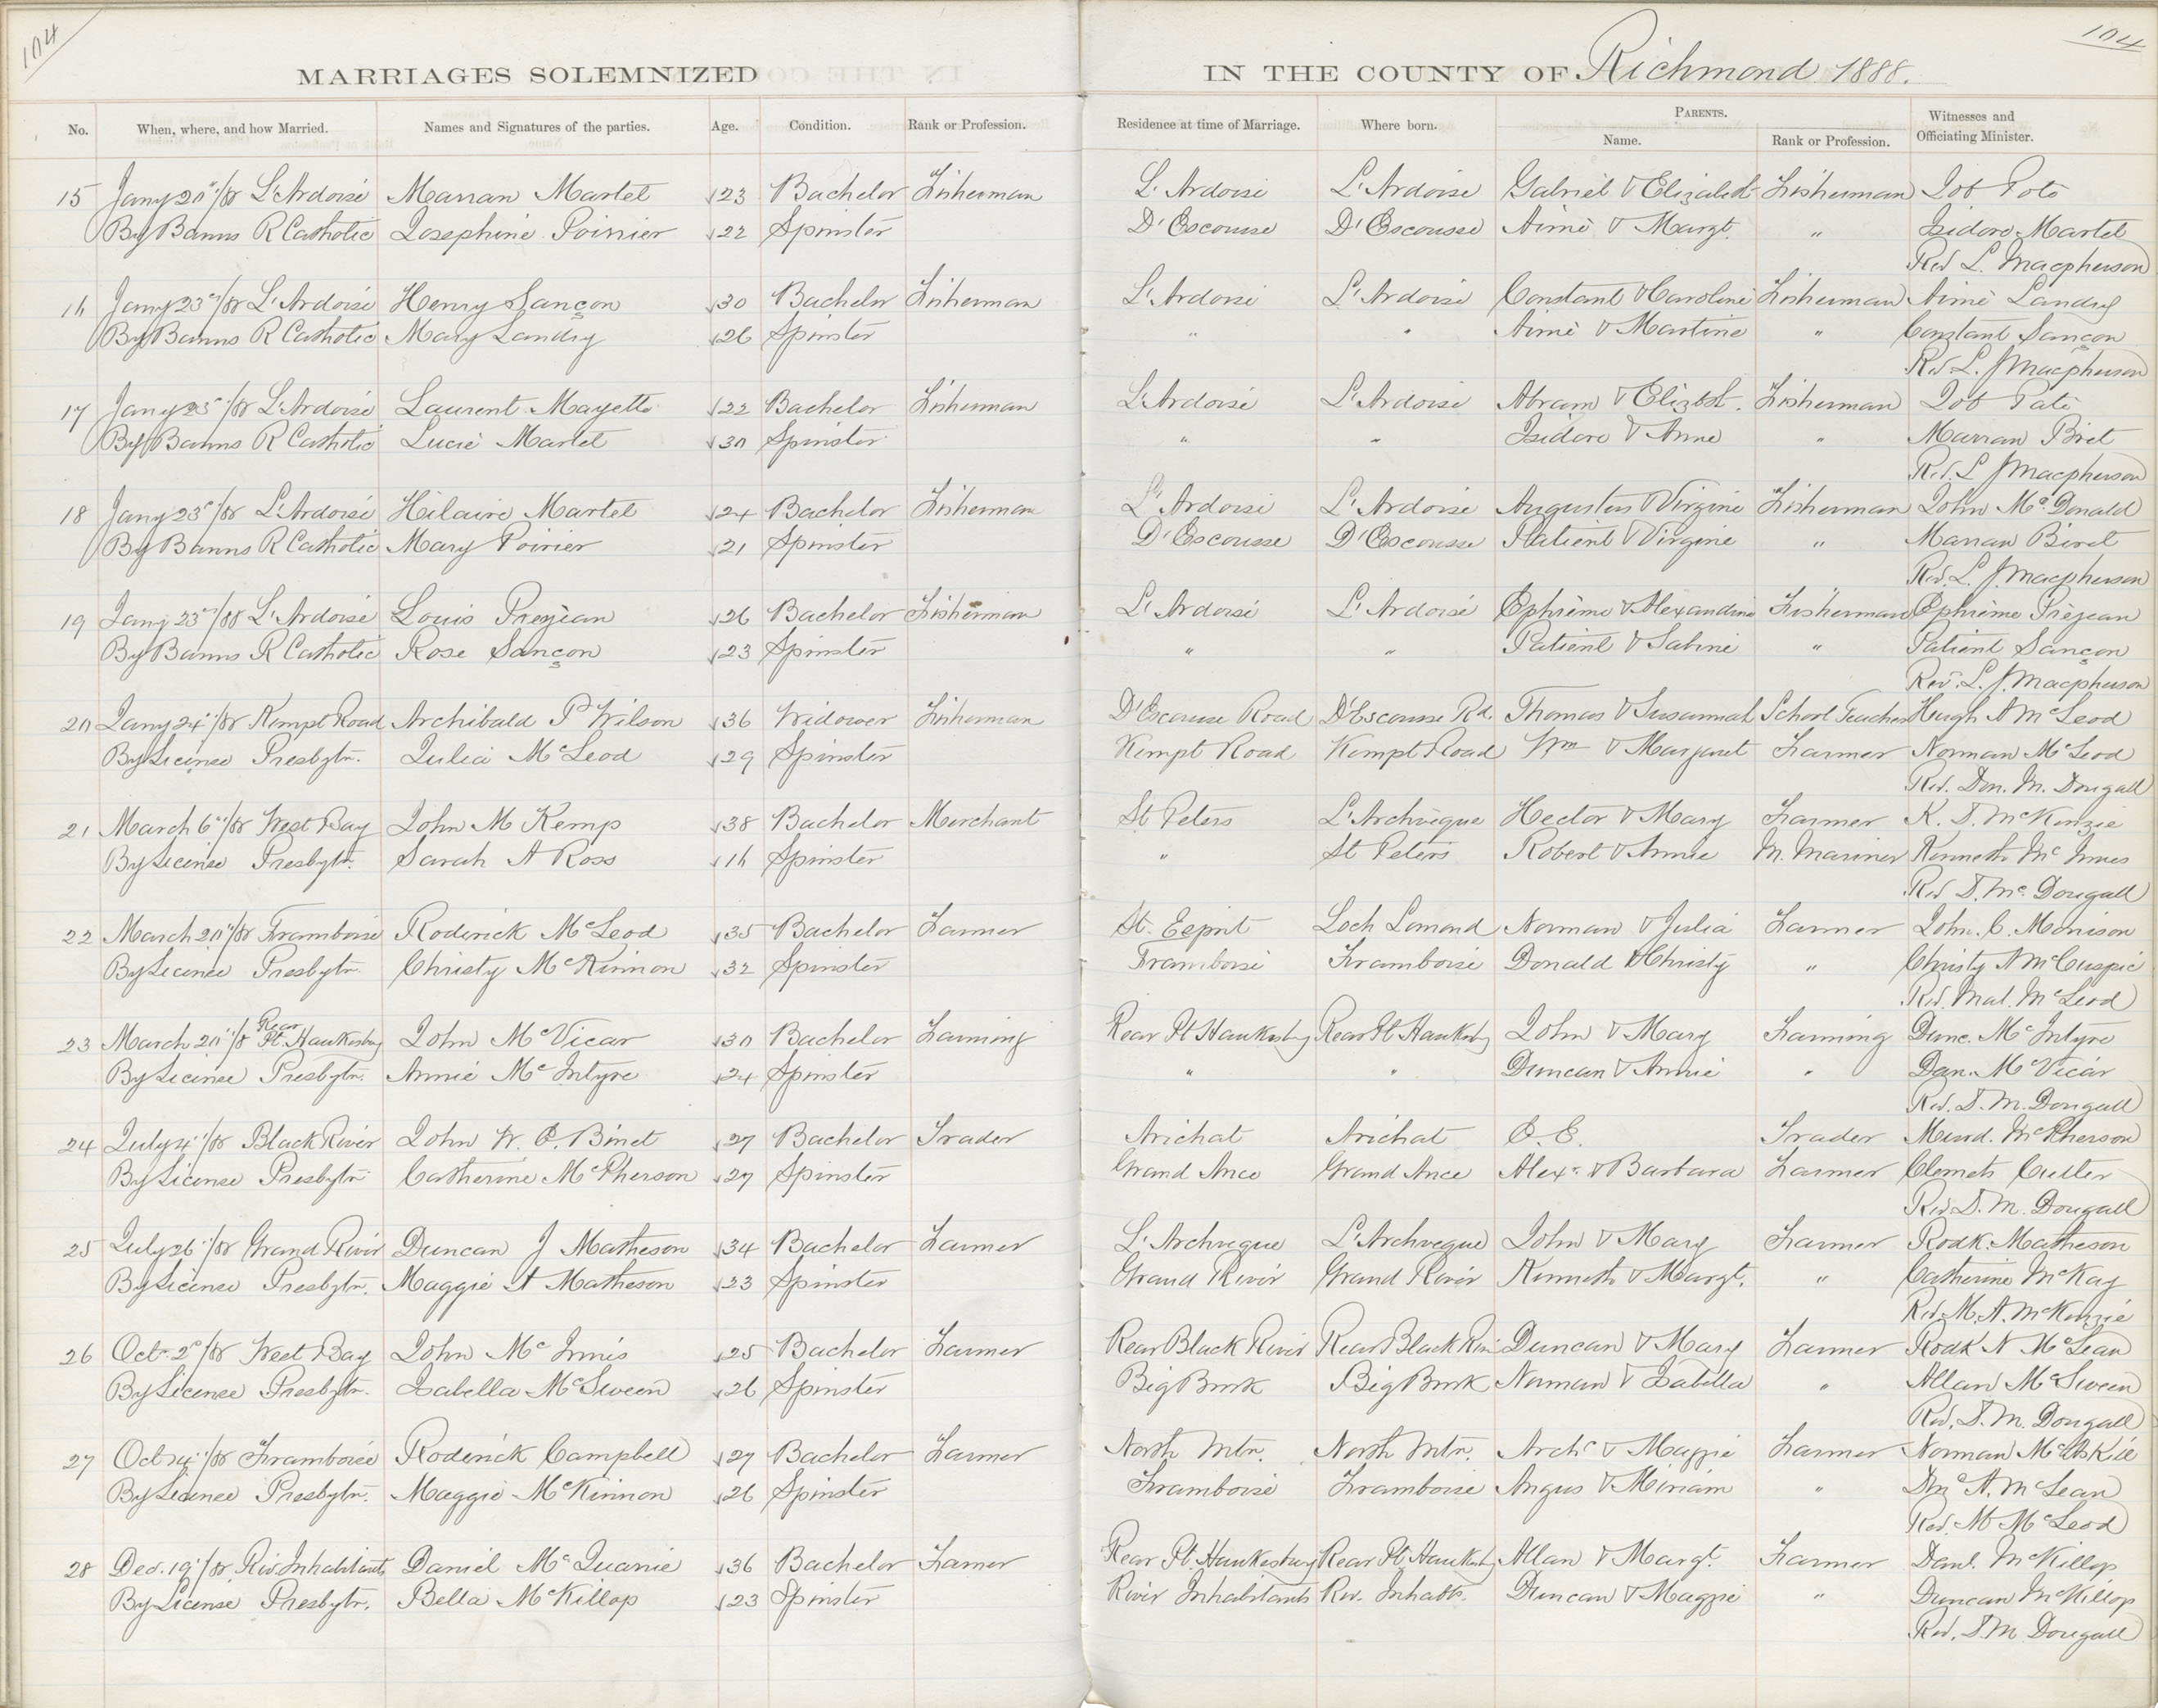 104
104
MARRIAGES SOLEMNIZED IN THE COUNTY OF Richmond 1888.
No. When, where, and how Married. Names and Signatures of the parties. Age. Condition. Rank or Profession. Residence at time of Marriage. Where born. PARENTS. Name. Rank or Profession. Witnesses and Officiating Minister.
15 Jany 20"/88 L'Ardoise Marran Martel 23 Bachelor Fisherman L'Ardoise L'Ardoise Gabriel & Elizabet Fisherman Job Poté
By Banns R Catholic Josephine Poirier 22 Spinster D'Escousse D'Escousse Aimé & Margt. " Isidore Martel
Rev L. Macpherson
16 Jany 23"/88 L'Ardoise Henry Sançon 30 Bachelor Fisherman L'Ardoise L'Ardoise Constant & Caroline Fisherman Aimé Landry
By Banns R Catholic Mary Landry 26 Spinster " " Aimé & Martine " Constant Sançon
Rev L. J Macpherson
17 Jany 23"/88 L'Ardoise Laurent Mayette 22 Bachelor Fisherman L'Ardoise L'Ardoise Abram & Elizbt. Fisherman Job Paté
By Banns R Catholic Lucie Martel 30 Spinster " " Isidore & Anne " Marran Biret
Rev. L J Macpherson
18 Jany 23"/88 L'Ardoise Hilaire Martel 24 Bachelor Fisherman L'Ardoise L'Ardoise Augustus & Virginie Fisherman John McDonald
By Banns R Catholic Mary Poirier 21 Spinster D'Escousse D'Escousse Patient & Virginie " Marran Biret
Rev. L. J. Macpherson
19 Jany 23"/88 L'Ardoise Louis Prejean 26 Bachelor Fisherman L'Ardoise L'Ardoise Ephrème & Alexandrine Fisherman Ephrème Prèjean
By Banns R Catholic Rose Sançon 23 Spinster " " Patient & Sabine " Patient Sançon
Rev. L. J. Macpherson
20 Jany 24"/88 Kempt Road Archibald P Wilson 36 Widower Fisherman D'Escousse Road D'Escousse Rd. Thomas & Susannah School Teacher Hugh A McLeod
By License Presbytn. Julia McLeod 29 Spinster Kempt Road Kempt Road Wm & Margaret Farmer Norman McLeod
Rev. Don. M. Dougall
21 March 6"/88 West Bay John M Kemp 38 Bachelor Merchant St Peters L'Archvèque Hector & Mary Farmer K. D. McKenzie
By License Presbytn. Sarah A Ross 16 Spinster " St Peters Robert & Annie M. Mariner Kenneth McInnes
Rev D. Mc Dougall
22 March 20"/88 Framboise Roderick McLeod 35 Bachelor Farmer St. Esprit Loch Lomond Norman & Julia Farmer John. C. Morrison
By License Presbytn. Christy McKinnon 32 Spinster Framboise Framboise Donald & Christy " Christy A McCuspic
Rev. Mal. McLeod
23 March 20"/8 Rear Pt. Hawkesbury John McVicar 30 Bachelor Farming Rear Pt Hawkesbury Rear Pt Hawkesby John & Mary Farming Dunc. McIntyre
By License Presbytn. Annie McIntyre 24 Spinster " " Duncan & Annie " Dan. McVicar
Rev. D. M. Dougall
24 July 4"/88 Black River John W. O. Binet 27 Bachelor Trader Arichat Arichat O. E. Trader Murd. McPherson
By License Presbytn Catherine McPherson 27 Spinster Grand Ance Grand Ance Alexr. & Barbara Farmer Cutler
Rev. D. M. Dougall
25 July 26"/88 Grand River Duncan J Matheson 34 Bachelor Farmer L'Archveque L'Archveque John & Mary Farmer Rodk. Matheson
By License Presbytn. Maggie A Matheson 23 Spinster Grand River Grand River Kenneth & Margt. " Catherine McKay
Rev. M. A. McKenzie
26 Octr. 2"/88 West Bay John McInnis 25 Bachelor Farmer Rear Black River Rear Black Riv Duncan & Mary Farmer Rodk N McLean
By License Presbytn. Isabella McSween 26 Spinster Big Brook Big Brook Norman & Isabella " Allan McSween
Rev. D. M. Dougall
27 Oct 24"/88 Framboise Roderick Campbell 27 Bachelor Farmer North Mtn. North Mtn. Archd & Maggie Farmer Norman McAskile
By License Presbytn. Maggie McKinnon 26 Spinster Framboise Framboise Angus & Miriam " A. McLean
Rev. M McLeod
28 Dec. 19"/88 Riv. Inhabitants Daniel McQuarrie 36 Bachelor Farmer Rear Pt. Hawkesbury Rear Pt. Hawkesby Allan & Margt. Farmer Danl. McKillop
By License Presbytn. Bella McKillop 23 Spinster River Inhabitants Riv. Inhabts. Duncan & Maggie " Duncan McKillop
Rev. D. M Dougall